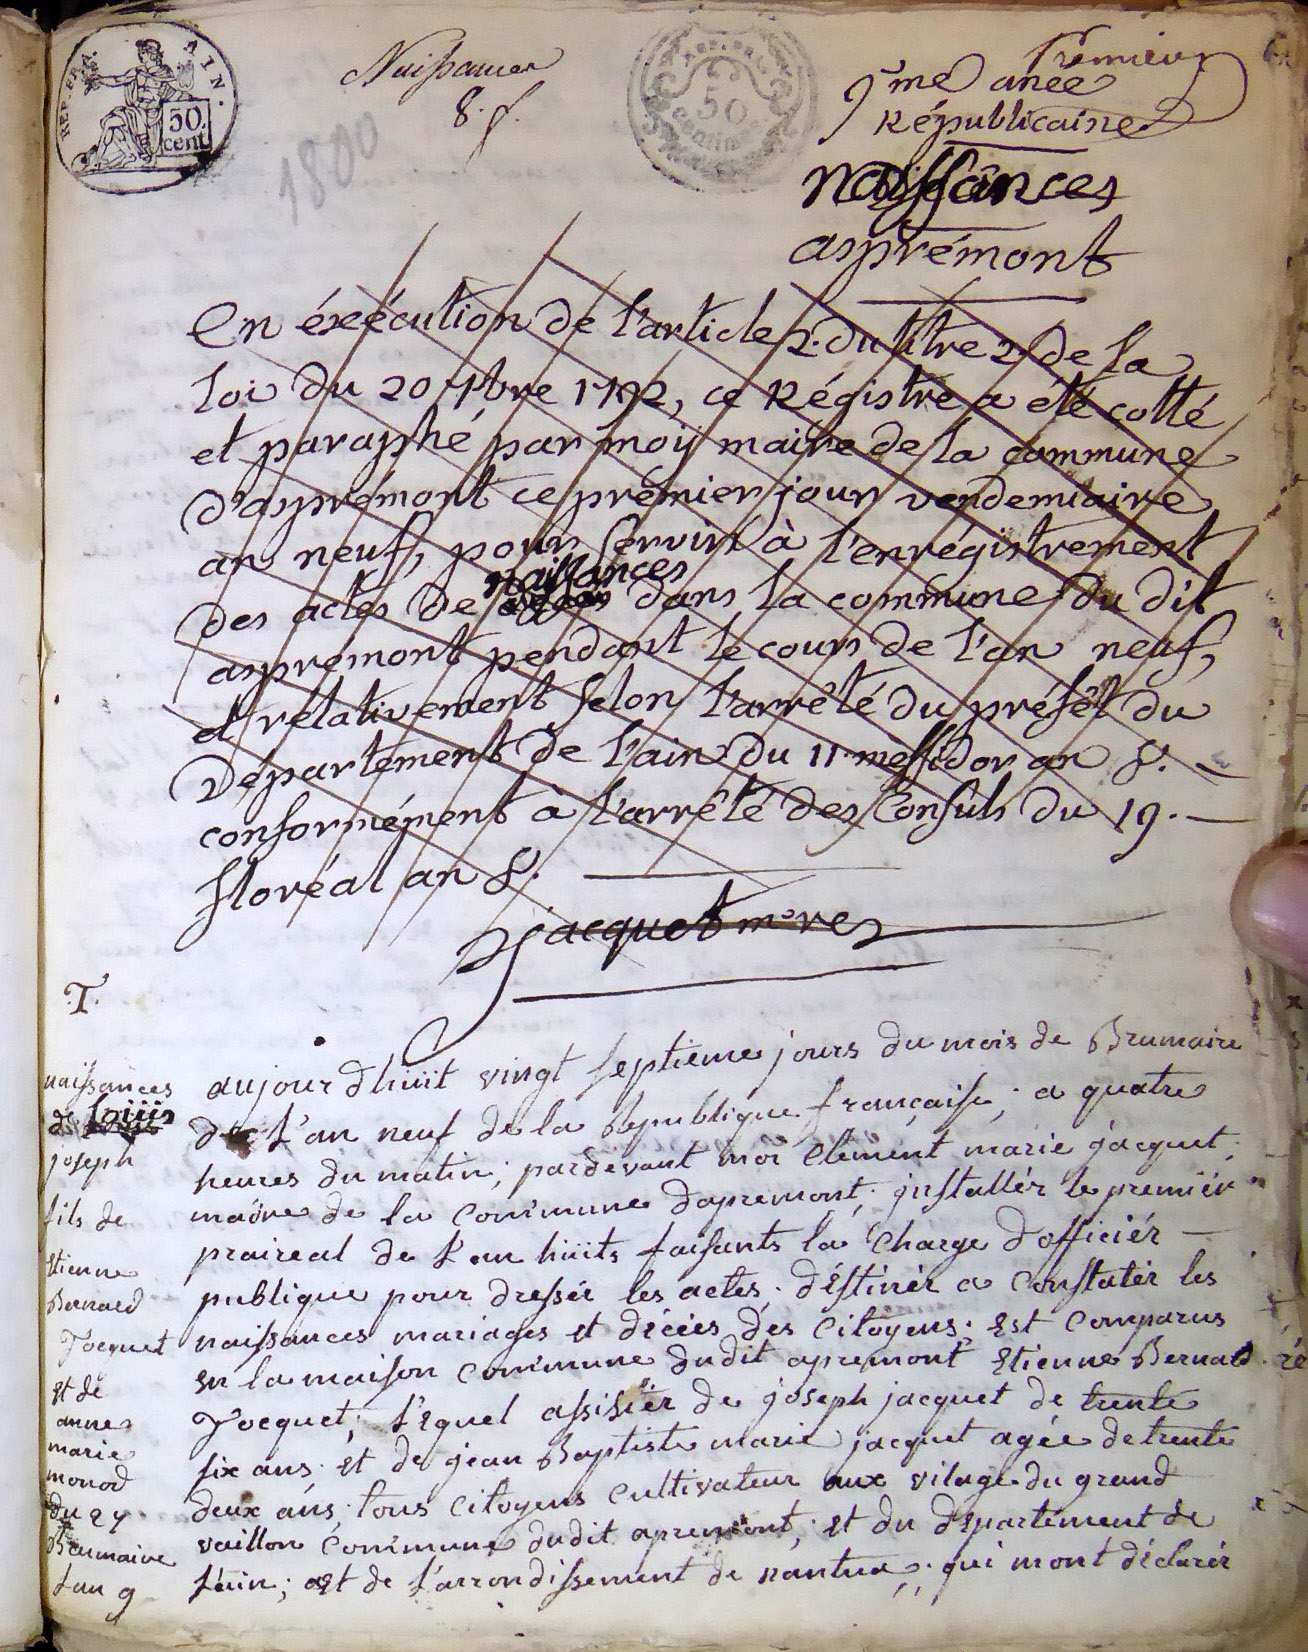 REP. FRA. AIN.
50 cent
Naissances
8. f.
1800
REP. FRA.
50
centimes
Prémier
9me anée
Républicaine
naissances
asprémont
En éxécution de l'article 2. du titre 2. de la
loi du 20 7bre 1792, ce Régistre a été cotté
et paraphé par moÿ maire de la commune
d'asprémont ce prémier jour vendemiaire
an neuf, pour servir à l'enregïstrement
des actes de naissances dans la commune du dit
aspremont pendant le cours de l'an neuf,
et rélativement selon l'arrêté du préfêt du
Département de l'ain du 11. messidor an 8.
conformément à l'arrêté des Consuls du 19.
floréal an 8.
jacquet m.re
.T.
naissances
de
joseph
fils de
Etienne
Bernard
Jocquet
et de
anne
marie
monod
du 27
Brumaire
lan 9
aujour dhüit vingt septieme jours du mois de Brumaire
de l'an neuf de la Republique francaise; a quatre
heures du matin; pardevant moi clément marie jacquet;
maöre de la commune dapremont; jnstallér le premiér
praireal de l'an hüits faisants la Charge d'officiér
publique pour dressér les actes. déstinér a constatér les
naissances mariages et décées des citoyens; est comparus
en la maison commune dudit apremont Etienne Bernard
Jocquet; l'equel assistér de joseph jacquet de trente
six ans. et de jean Baptiste marie jacquet agée de trente
deux ans; tous citoyens cultivateur aux vilage du grand
vaillon commune dudit apremont; et du département de
l'ain; et de l'arrondissement de nantua; qui mont déclarér